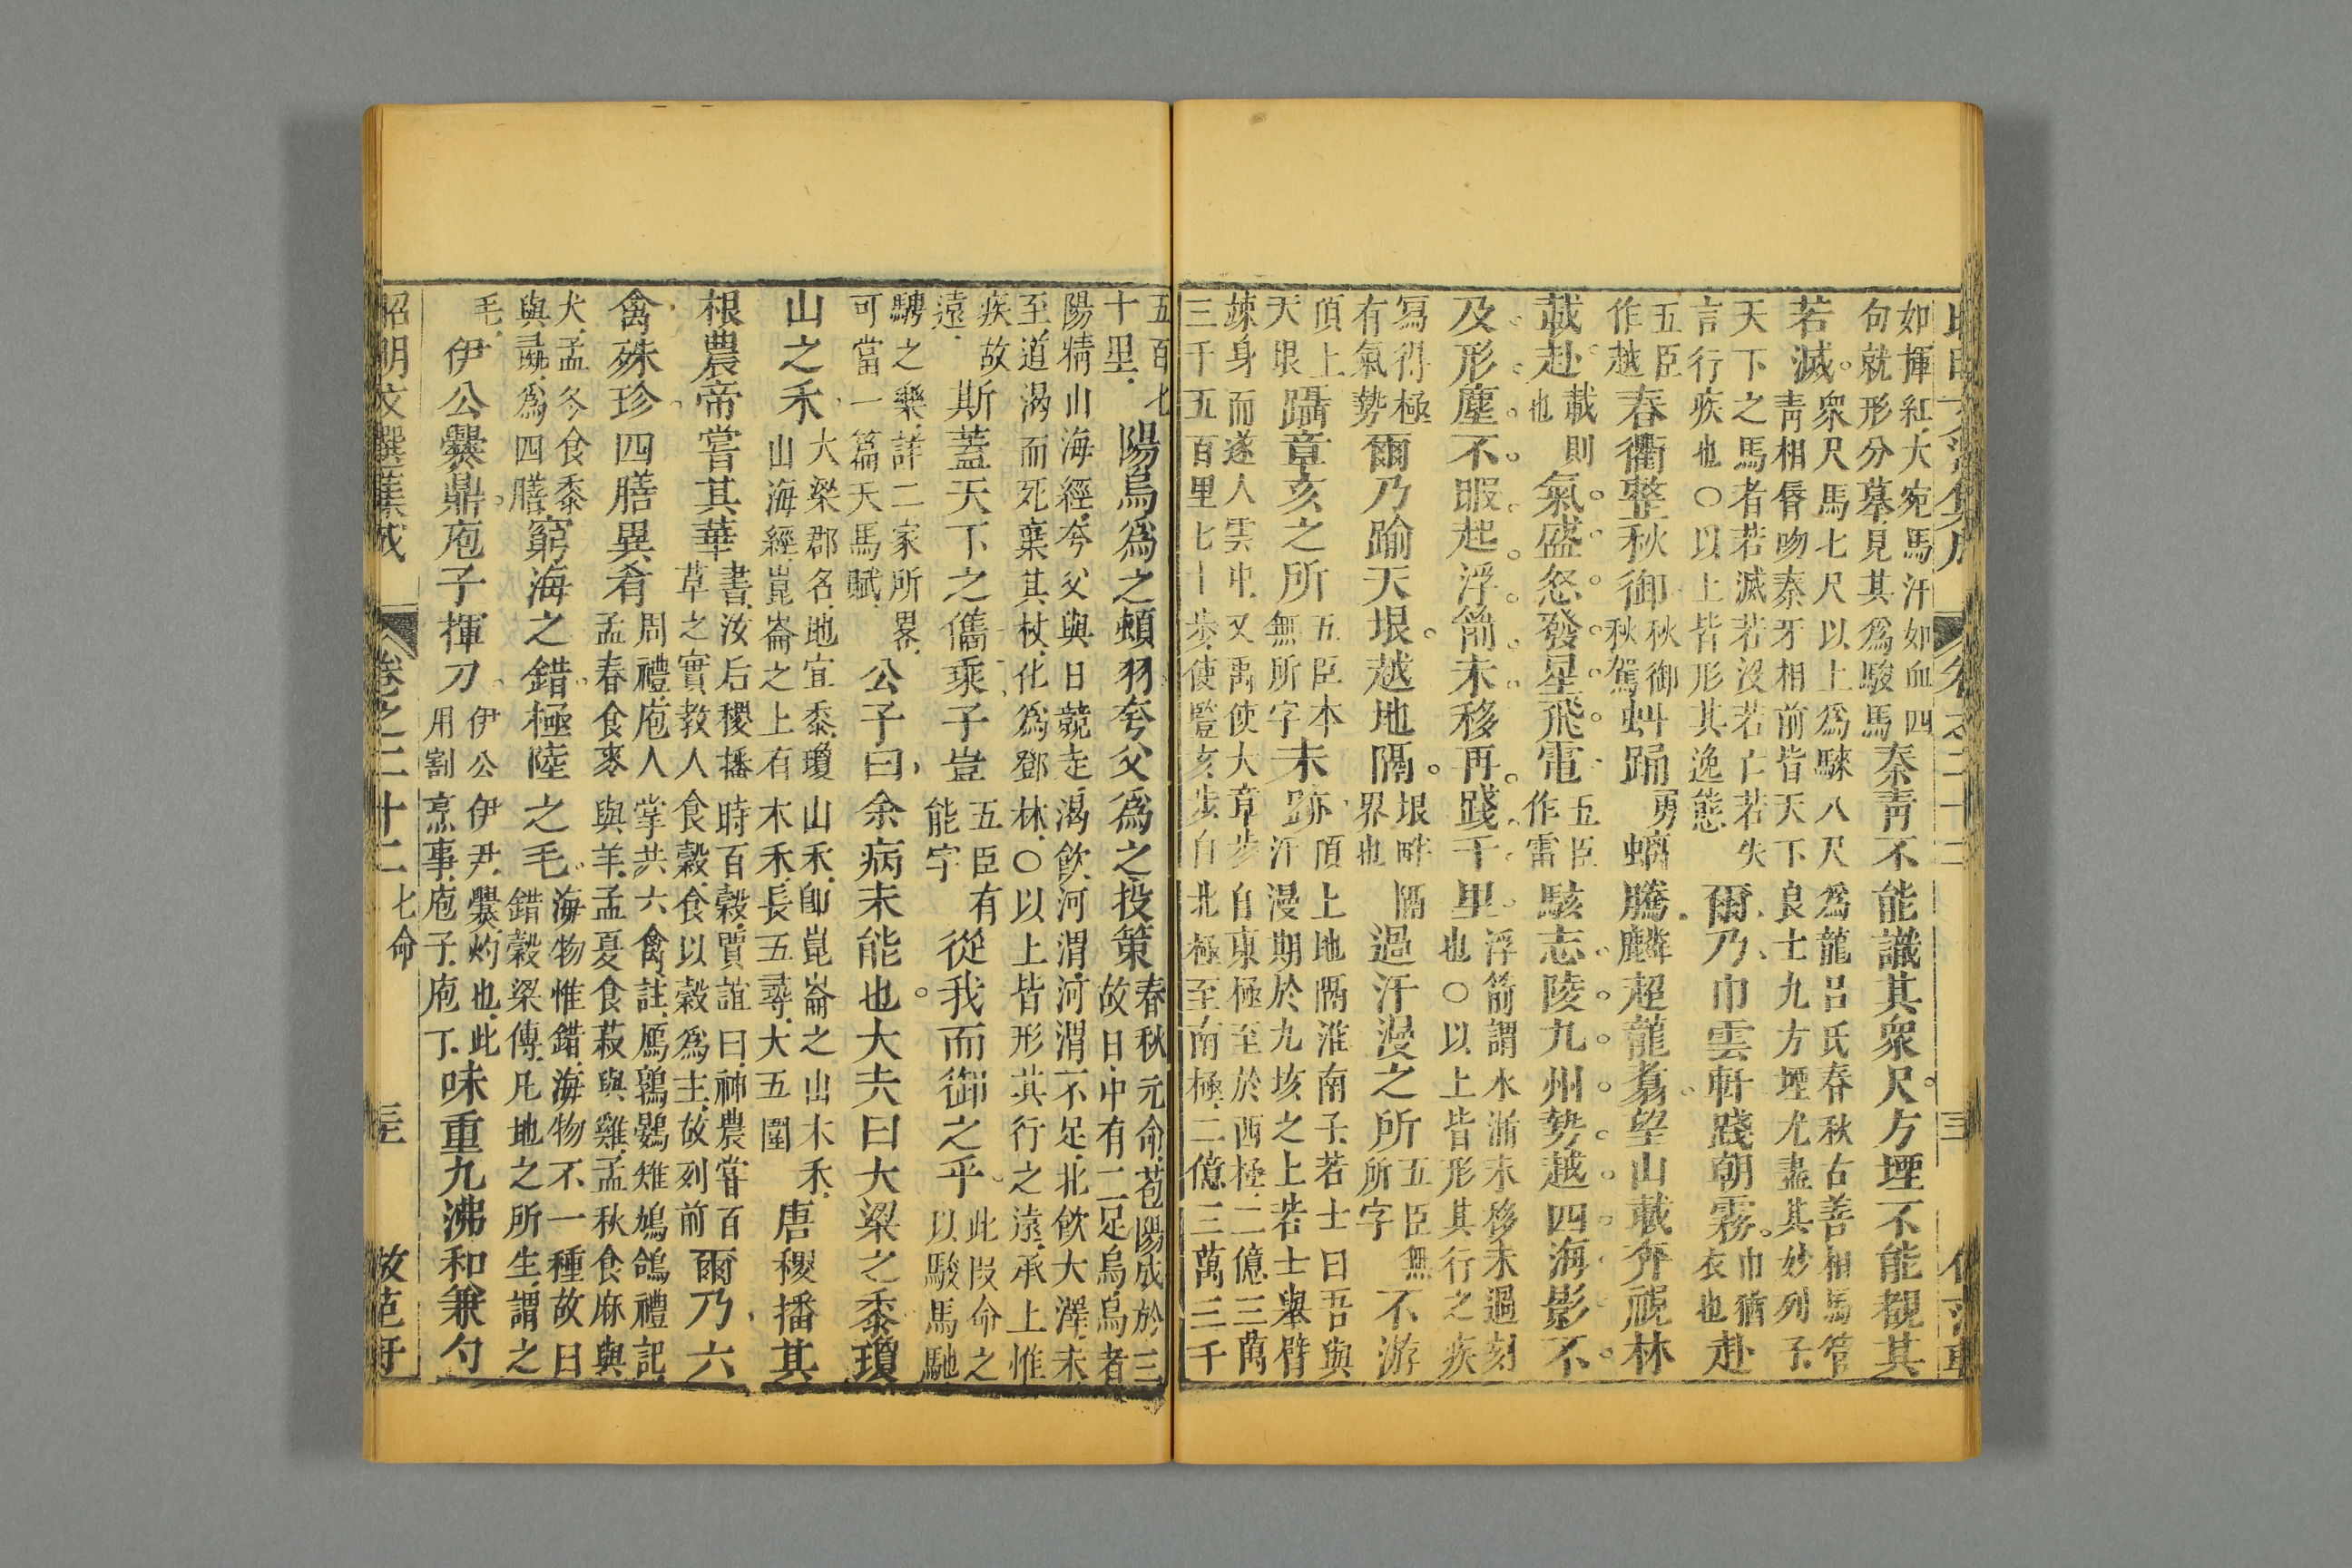 如揮紅大宛馬汗如血四
句就形分摹見其爲駿馬
秦青不能識其衆尺。方堙不能覩其
若滅。
衆尺馬七尺以上爲騋八尺爲龍呂氏春秋古善相馬管
青相脣吻秦牙相前皆天下良士九方堙尤盡其妙列子
天下之馬者若滅若沒若亡若失
言行疾也○以上皆形其逸態
爾乃巾雲軒踐朝霧。
巾猶
衣也
赴
五臣
作越
春衢整秋御
秋御
秋駕
虯踊
勇
螭騰。麟超龍翥。望山載奔視林
載赴
載則
也
氣盛怒發星飛電
五臣
作雷
駭志陵九州勢越四海影不
及形塵不暇起浮箭未移再踐千里
浮箭謂水漏未移未過刻
也○以上皆形其行之疾
寫得極
有氣勢
爾乃踰天垠。越地隔。
垠畔
界也
隔
過汗漫之所
五臣無
所字
不游
頂上
天垠
躡章亥之所
五臣本
無所字
未迹
頂上地隔淮南子若士曰吾與
汗漫期於九垓之上若士舉臂
竦身而遂入雲中又禹使大章步自東極至於西極二億三萬
三千五百里七十步使豎亥步自北極至南極二億三萬三千
五百七
十里
陽烏爲之頓羽夸父爲之投策
春秋元命苞陽成於三
故日中有二足烏烏者
陽精山海經夸父與日競走渴飲河渭河渭不足北飲大澤未
至道渴而死棄其杖化爲鄧林○以上皆形其行之遠承上惟
疾故
遠
斯蓋天下之儁乘子豈
五臣有
能字
從我而御之乎。
此叚命之
以駿馬馳
騁之樂詳二家所畧
可當一篇天馬賦
公子曰余病未能也。大夫曰大梁之黍瓊
山之禾
大梁郡名地宜黍瓊山禾卽崑崙之山木禾
山海經崑崙之上有木禾長五尋大五圍
唐稷播其
根農帝嘗其華
書汝后稷播時百穀賈誼曰神農嘗百
草之實教人食穀食以穀爲主故列前
爾乃六
禽殊珍四膳異肴
周禮庖人掌共六禽註鴈鶉鷃雉鳩鴿禮記
孟春食麥與羊孟夏食菽與雞孟秋食麻與
犬孟冬食黍
與彘爲四膳
窮海之錯。極陸之毛。
海物惟錯海物不一種故曰
錯穀梁傳凡地之所生謂之
毛
伊公爨鼎。庖子揮刀。
伊公伊尹爨灼也此
用割烹事庖子庖丁
味重九沸和兼勺
昭明文選集成 卷之二十二 七命